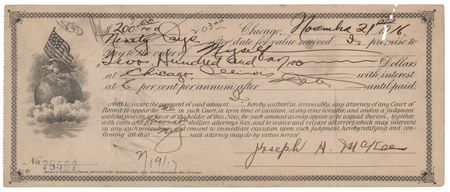 $200.00 Chicago, November 21st 1916
Ninety Days after date for value received I promise to
Pay to the order of Myself
Two Hundred and no/100 Dollars
at Chicago, Illinois with interest
at 6 per cent per annum after date until paid.
And to secure the payment of said amount I hereby authorize, irrevocably, any attorney of any Court of
Record to appear for me in such Court, in term time or vacation, at any time hereafter, and confess a judgment
without process in favor of the holder of this Note, for such amount as may appear to be unpaid thereon, together
with costs and dollars attorneys fees, and to waive and release all errors which may intervene
in any such proceedings, and consent to immediate execution upon such judgment, hereby ratifying and con-
firming all that my said attorney may do by virtue hereof.
No. 78567
Joseph A. McKee
2/19/17